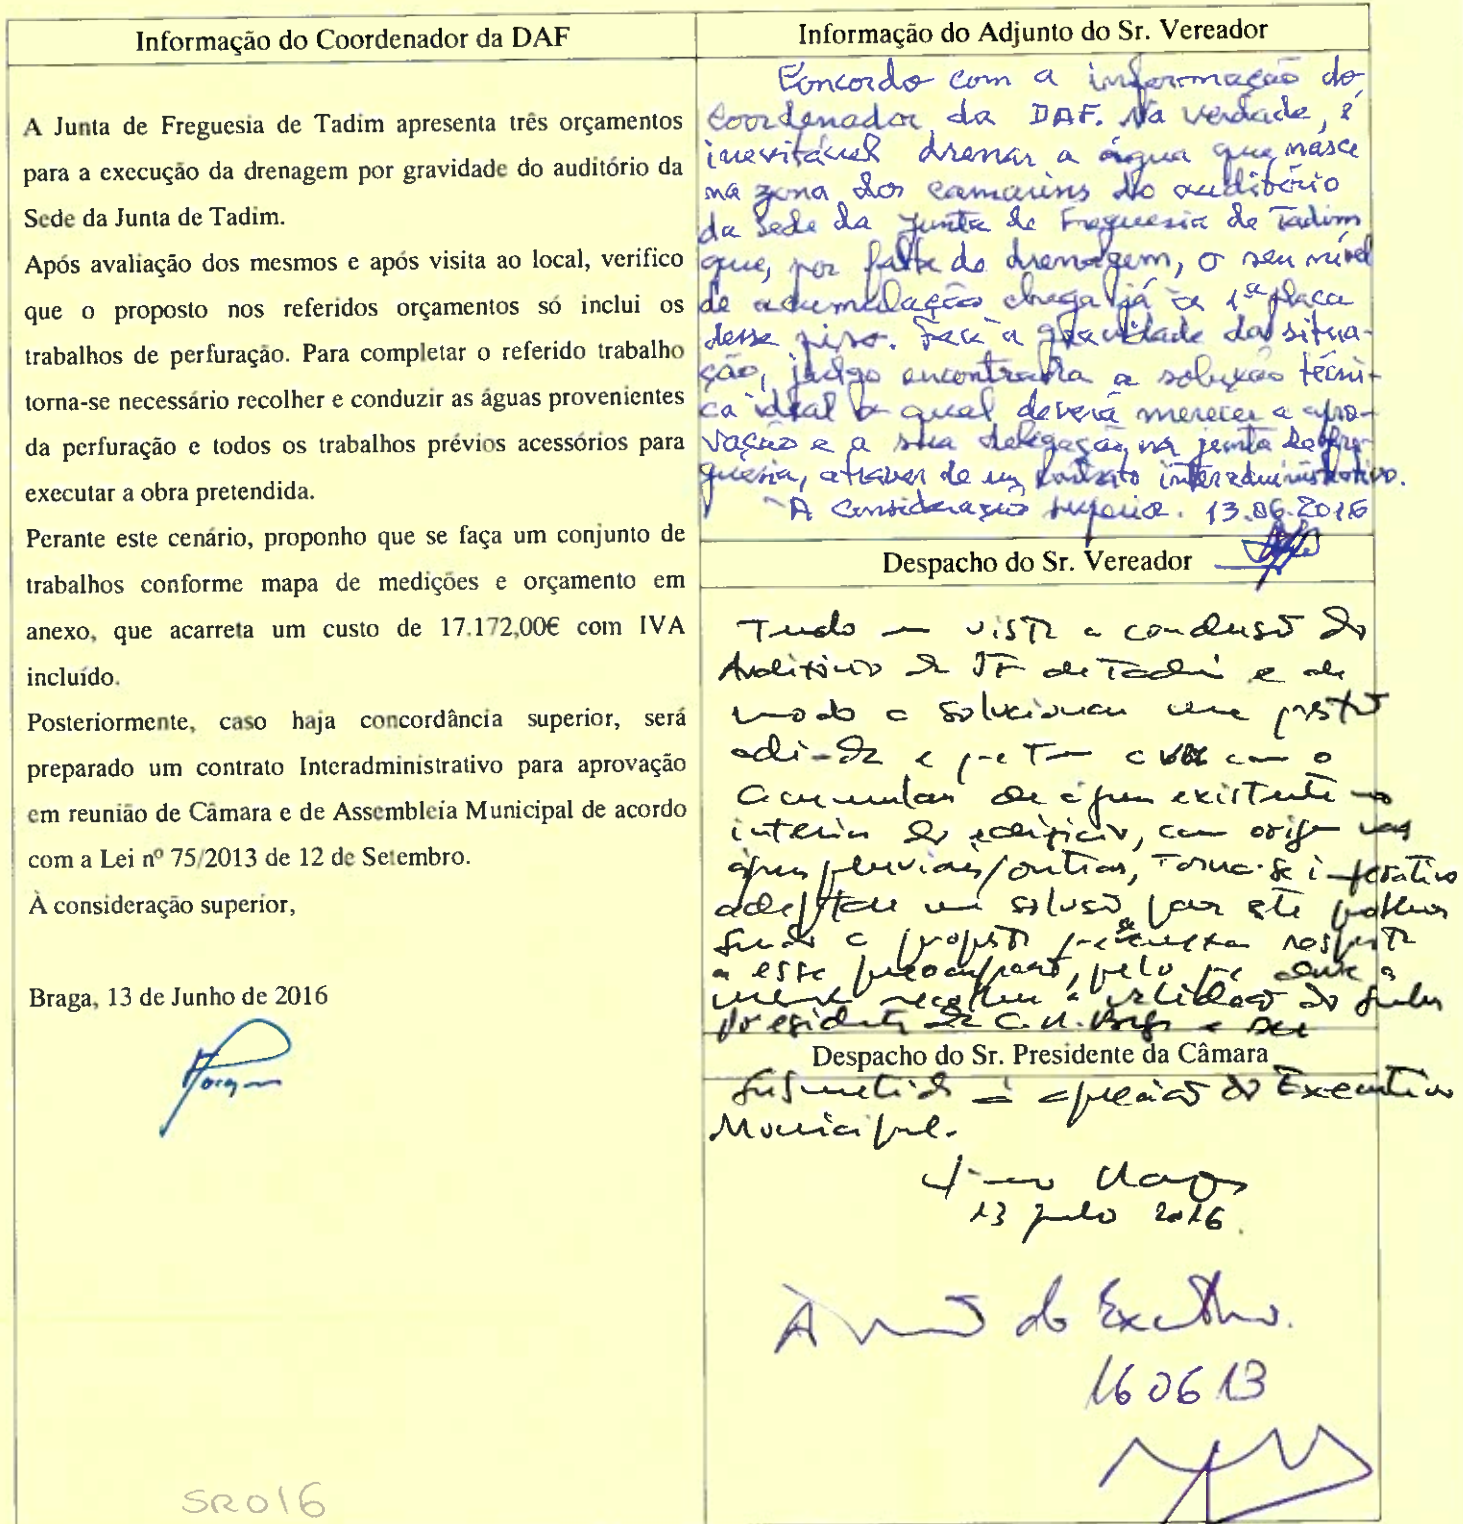 Informação do Coordenador da DAF
A Junta de Freguesia de Tadim apresenta três orçamentos
para a execução da drenagem por gravidade do auditório da
Sede da Junta de Tadim.
Após avaliação dos mesmos e após visita ao local, verifico
que o proposto nos referidos orçamentos só inclui os
trabalhos de perfuração. Para completar o referido trabalho
torna-se necessário recolher e conduzir as águas provenientes
da perfuração e todos os trabalhos prévios acessórios para
executar a obra pretendida.
Perante este cenário, proponho que se faça um conjunto de
trabalhos conforme mapa de medições e orçamento em
anexo, que acarreta um custo de 17.172,00€ com IVA
incluído.
Posteriormente, caso haja concordância superior, será
preparado um contrato Interadministrativo para aprovação
em reunião de Câmara e de Assembleia Municipal de acordo
com a Lei nº 75/2013 de 12 de Setembro.
À consideração superior,
Braga, 13 de Junho de 2016
SR016
Informação do Adjunto do Sr. Vereador
Concordo com a informação do
Coordenador da DAF. Na verdade, é
inevitável drenar a água que nasce
na zona dos camarins do auditório
da Sede da Junta de Freguesia de Tadim
que, por falta de drenagem, o seu nível
de acumulação chega já à 1ª placa
desse piso. Face à gravidade da situa-
ção, julgo encontrada a solução técni-
ca ideal a qual deverá merecer a apro-
vação e a sua delegação na junta de fre-
guesia, através de um contrato interadministrativo.
À Consideração superior. 13.06.2016
Despacho do Sr. Vereador
Tudo em vista a conclusão do
Auditório da JF de Tadim e de
modo a solucionar uma questão
a
acumular de água existente no
interior do edifício, com origem nas
águas pluviais/outras, torna-se imperativo
uma solução, por este
a proposta resposta
a esse pelo
a validação do
Presidente da C.M. Braga e ser
Despacho do Sr. Presidente da Câmara
submetido à apreciação do Executivo
Municipal.
13 2016.
À do Executivo.
160613